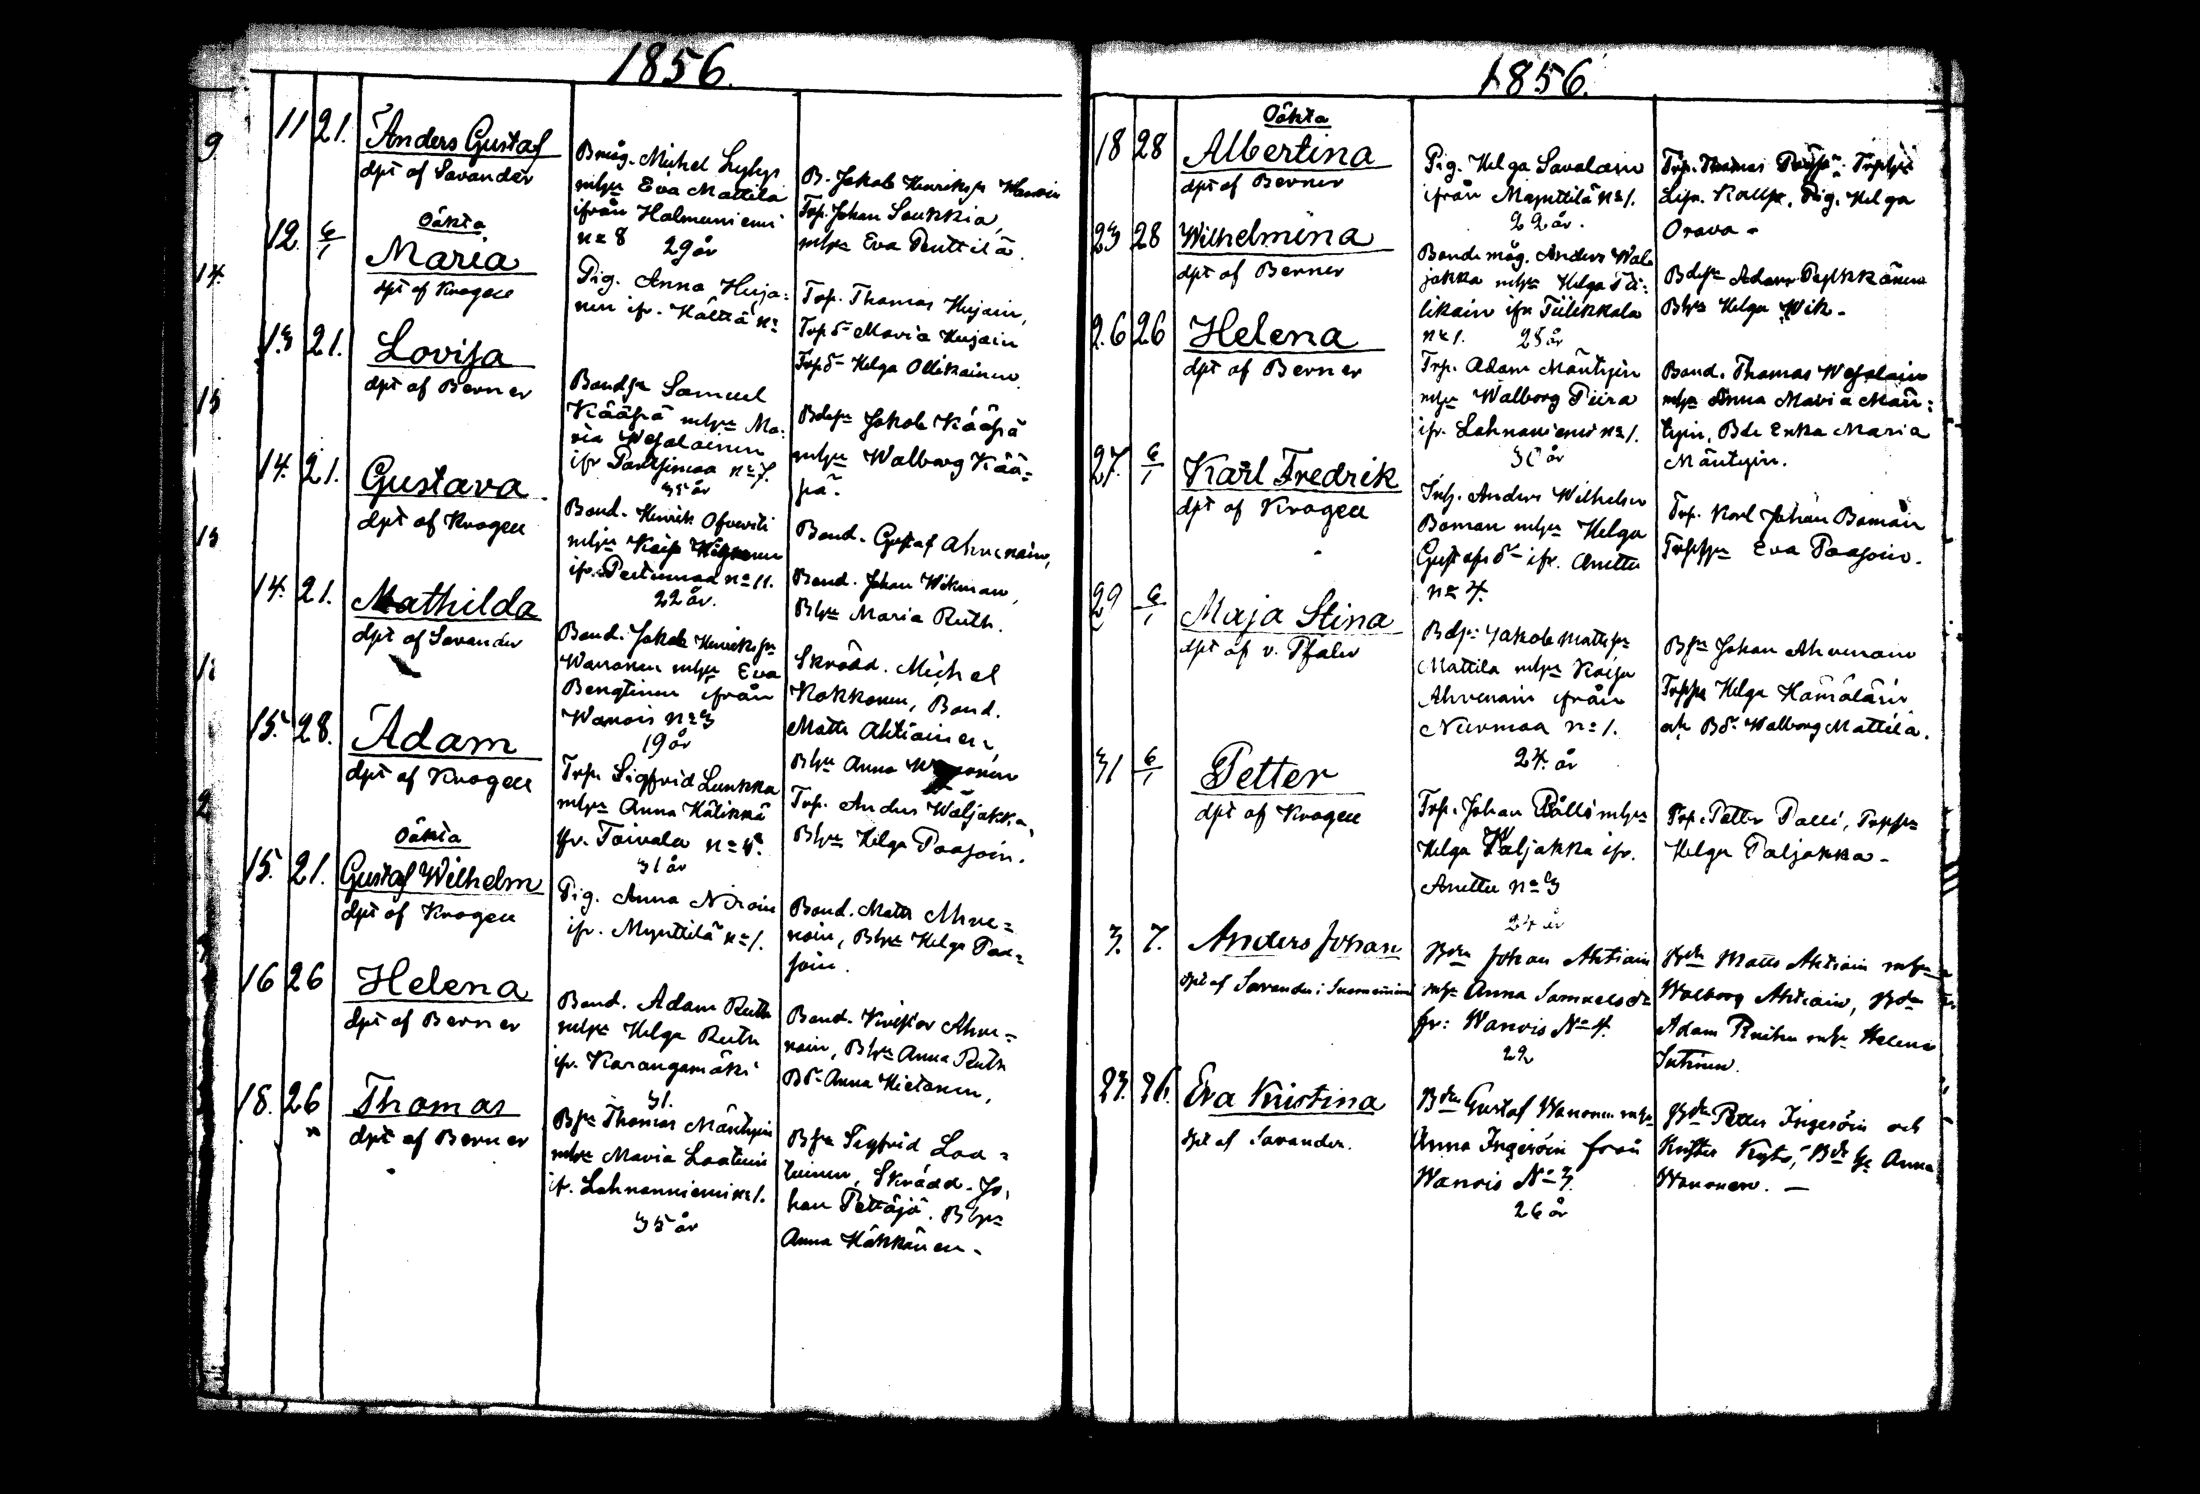 1856.
11 21. Anders Gustaf
dpt af Savander
Bmåg. Michel
mhu Eva Mattila
ifrån Halmuniemi
no 8 29 år
B. Jakob Henriksn
Trp. Johan Saukkia,
mhu Eva Penttilä.
12. 6/1 Oäkta
Maria
dpt af Krogell
Pig. Anna Huja=
nen ifr. Kältiä no
Trp. Thomas Hujain,
Trpdr Maria Hujain
Trpdr Helga Ollikainen.
13 21. Lovisa
dpt af Berner
Bondsn Samuel
Kääpä mhu Ma=
ria Wesalainen
ifr no 7.
35 år
Bdesn Jakob Kääpä
mhu Walborg Kää=
pä.
14. 21. Gustava.
dpt af Krogell
Bond. Henrik
mhu Kaisa
ifr. Pertumaa no 11.
22 år.
Bond. Gustaf Ahvenain,
Bond. Johan Wikman,
Bhu Maria Ruth.
14. 21. Mathilda
dpt af Savander
Bond. Jakob Henriksn
Wanonen mhu Eva
Bengtinen ifrån
Wanois no 3
19 år
Skrädd. Michel
Kokkonen, Bond.
Matts Ahtiainen,
Bhu Anna
15. 28. Adam
dpt af Krogell
Trp. Sigfrid Lunkka
mhu Anna Hälikkä
fr. Toivola no 4.
31 år
Trp. Anders Waljakka,
Bhu Helga Paasoin.
15. 21. Oäkta
Gustaf Wilhelm
dpt af Krogell
Pig. Anna Niroin
ifr. Mynttilä no 1.
Bond. Matts Ahve=
nain, Bhu Helga Paa=
soin.
16 26 Helena
dpt af Berner
Bond. Adam Ruth
mhu Helga Ruth
ifr. Karangamäki
31.
Bond. Kristor Ahve=
nain, Bhu Anna Ruth
Bdr Anna Hietanen,
18. 26 Thomas
dpt af Berner
Bsn Thomas Mäntynen
mhu Maria Laatuin
ifr. Lahnaniemi no 1.
35 år
Bsn Sigfrid Laa=
tuinen, Skrädd. Jo=
han Pettäjä. Bhu
Anna Häkkänen.
1856.
18 28 Oäkta
Albertina
dpt af Berner
Pig. Helga Savolain
ifrån Mynttilä no 1.
22 år.
Trp. Thomas
Lisa. Pig. Helga
Orava -
23 28 Wilhelmina
dpt af Berner
Bondemåg. Anders Wal=
jakka mhu Helga Tii=
likain ifr Tiilikkala
no 1. 25 år
Bdesn Adam
Bhu Helga Wik -
26 26 Helena
dpt af Berner
Trp. Adam Mäntynin
mhu Walborg Piira
ifr. Lahnaniemi no 1.
Bond. Thomas Wesalain
mhu Anna Maria Män=
tynin, Bde Enka Maria
Mäntynin.
27. 6/1 Karl Fredrik
dpt af Krogell
Inh. Anders Wilhelm
Boman mhu Helga
Gustafsdr ifr. Anttu
no 4.
Trp. Karl Johan Boman
Eva Paasoin.
29 6/1 Maja Stina
dpt af v. Pfaler
Bdsn Jakob Mattsn
Mattila mhu Kaisa
Ahvenain ifrån
Nurmaa no 1.
24 år
Bsn Johan Ahvenain
Helga Hämäläin
och Bdr Walborg Mattila.
31 6/1 Petter
dpt af Krogell
Trp. Johan Palli mhu
Helga Paljakka ifr.
Anttu no 3
24 år
Trp. Petter Palli,
Helga Paljakka -
3. 7. Anders Johan
dpt af Savander i Suomenniemi
Bdn Johan Ahtiain
mhu Anna Samuelsdr
fr: Wanois No 4.
22
Bdn Matts Ahtiain mhu
Walborg Ahtiain, Bdn
Adam mhu Helena
23. 26. Eva Kristina
dpt af Savander.
Bdn Gustaf Wanonen mhu
Anna Ingeröin från
Wanois No 3.
26 år
Bdn Petter Ingeröin och
Krister Bde hu Anna
Wanonen. —